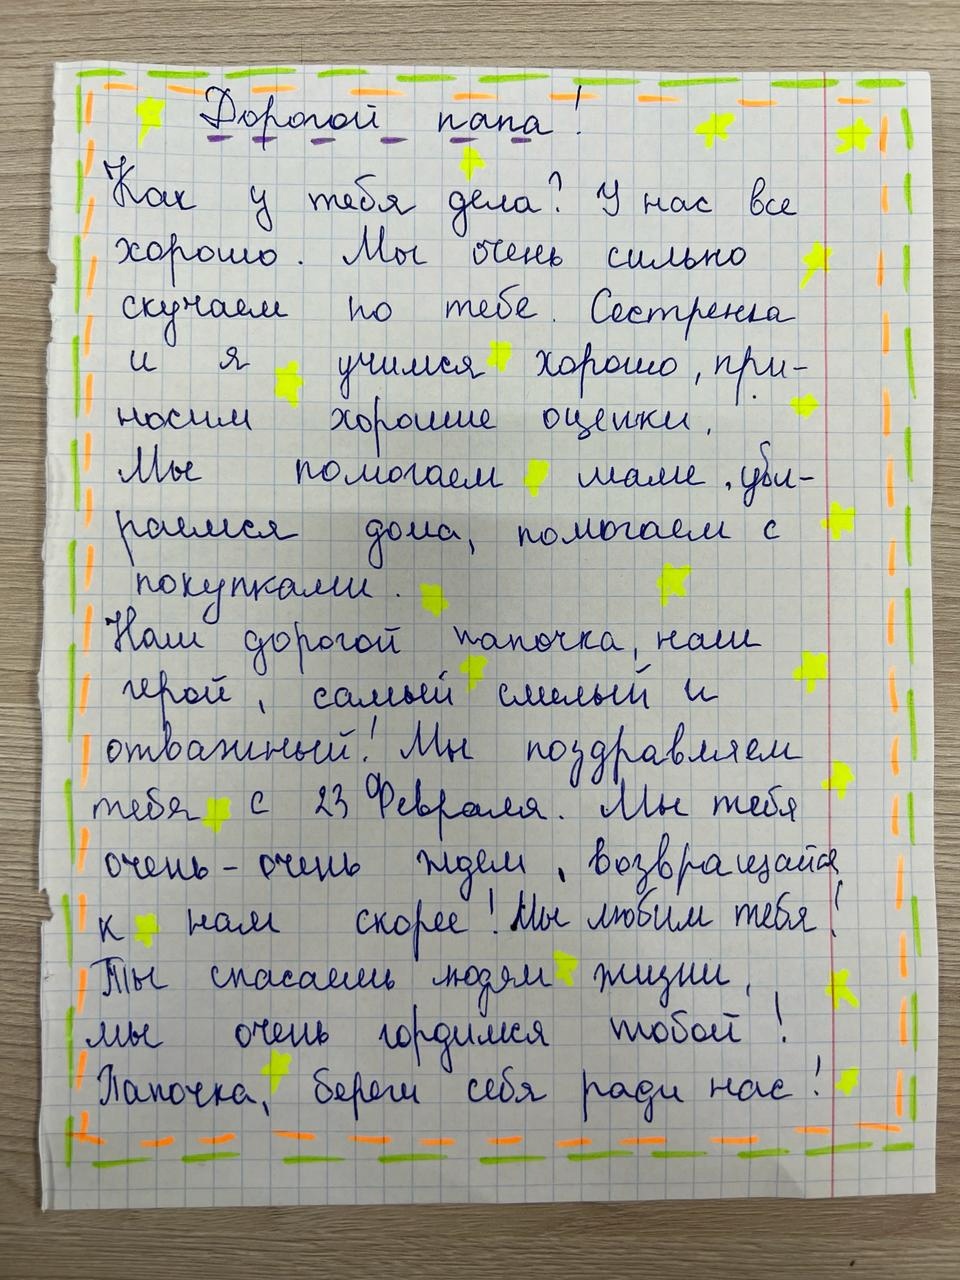 Дорогой папа!
Как у тебя дела? У нас все
хорошо. Мы очень сильно
скучаем по тебе. Сестренка
и я учимся хорошо, при-
носим хорошие оценки.
Мы помогаем маме, уби-
раемся дома, помогаем с
покупками.
Наш дорогой папочка, наш
герой, самый смелый и
отважный! Мы поздравляем
тебя с 23 Февраля. Мы тебя
очень-очень ждем, возвращайся
к нам скорее! Мы любим тебя!
Ты спасаешь людям жизни,
мы очень гордимся тобой!
Папочка, береги себя ради нас!